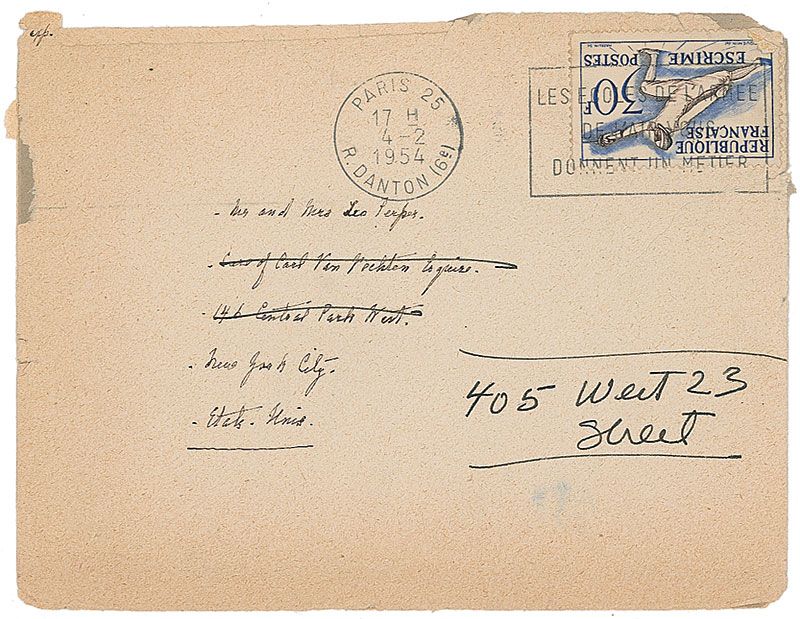 PARIS 25
17 H
4-2
1954
R. DANTON (6e)
LES ECOLES DE L'ARMEE
DE L'AIR VOUS
DONNENT UN METIER
REPUBLIQUE
FRANÇAISE
30F
ESCRIME
POSTES
- Mr and Mrs Leo Perper.
- Care of Carl Van Vechten Esquire.
- 146 Central Park West.
- New York City.
- Etats-Unis.
405 West 23
Street